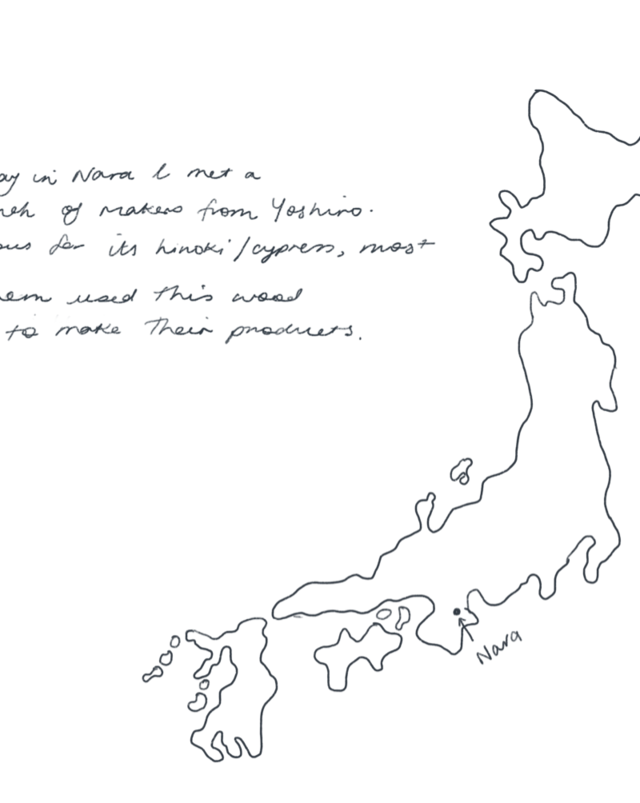 ay in Nara I met a
of makers from Yoshiro.
for its hinoki/cypress, most
em used this wood
to make their products.
Nara